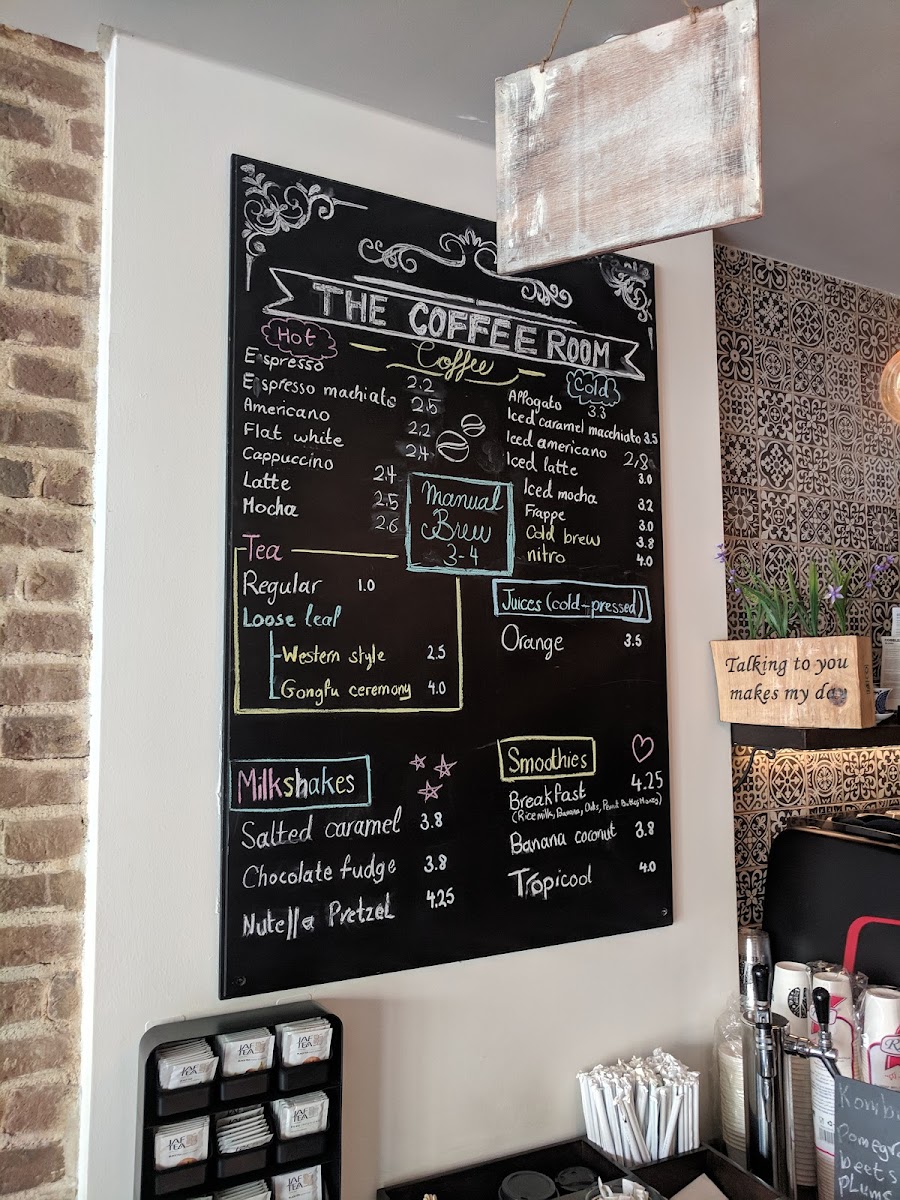 THE COFFEE ROOM
Coffee
Hot
Espresso 2.2
Espresso machiato 2.5
Americano 2.2
Flat white 2.4
Cappuccino 2.4
Latte 2.5
Mocha 2.6
Manual
Brew
3-4
Cold
Affogato 3.3
Iced caramel macchiato 3.5
Iced americano 2.8
Iced latte 3.0
Iced mocha 3.2
Frappe 3.0
Cold brew 3.8
nitro 4.0
Tea
Regular 1.0
Loose leaf
Western style 2.5
Gongfu ceremony 4.0
Juices (cold-pressed)
Orange 3.5
Milkshakes
Salted caramel 3.8
Chocolate fudge 3.8
Nutella Pretzel 4.25
Smoothies
Breakfast 4.25
(Rice milk, Banana, Oats, Peanut Butter, Honey)
Banana coconut 3.8
Tropicool 4.0
Talking to you
makes my day
JAF
TEA
JAF
TEA
JAF
TEA
JAF
TEA
JAF
TEA
JAF
TEA
Komb
Pomegra
beets
plums